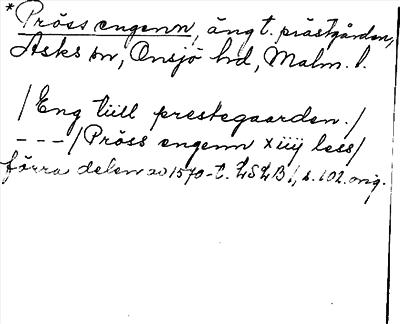 *Pröss engenn, äng t. prästgården,
Asks sn, Onsjö hd, Malm. l.
/Eng tiill prestegaarden./
---/Pröss engenn xiiij less/
förra delen av 1570-t. LSLB 1, s. 102. orig.